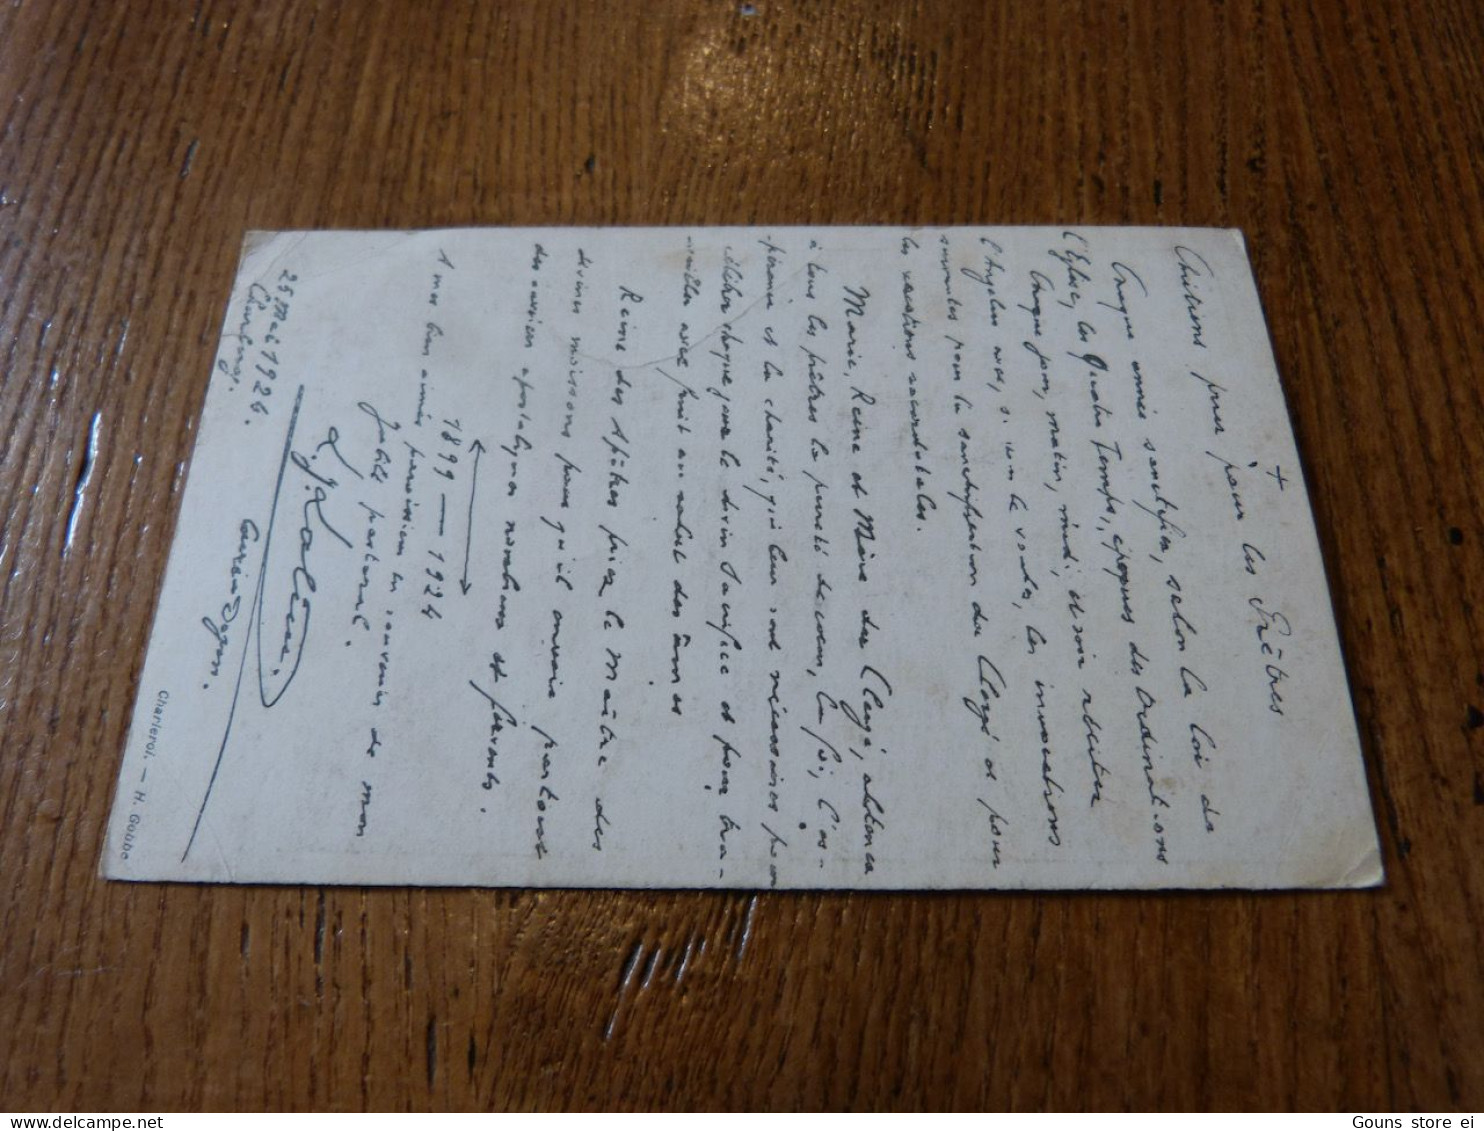 +
Chrétiens, priez pour les Prêtres
Chaque année sanctifiez, selon la loi de
l'Eglise, les Quatre Temps, époques des Ordinations
Chaque jour, matin, midi, et soir récitez
l'Angelus avec, si vous le voulez, les invocations
suivantes pour la sanctification du Clergé et pour
les vocations sacerdotales.
Marie, Reine et Mère du Clergé, obtenez
à tous les prêtres la pureté de cœur, la foi, l'es-
pérance et la charité, qui leur sont nécessaires pour
célébrer chaque jour le divin Sacrifice et pour tra-
vailler avec fruit au salut des âmes
Reine des Apôtres priez le Maître des
divines moissons pour qu'il envoie partout
des ouvriers apostoliques nombreux et fervents.
1899 — 1924
A mes bien aimés paroissiens en souvenir de mon
Jubilé pastoral.
25 Mai 1926.
Charleroi. — H. Gobbe.